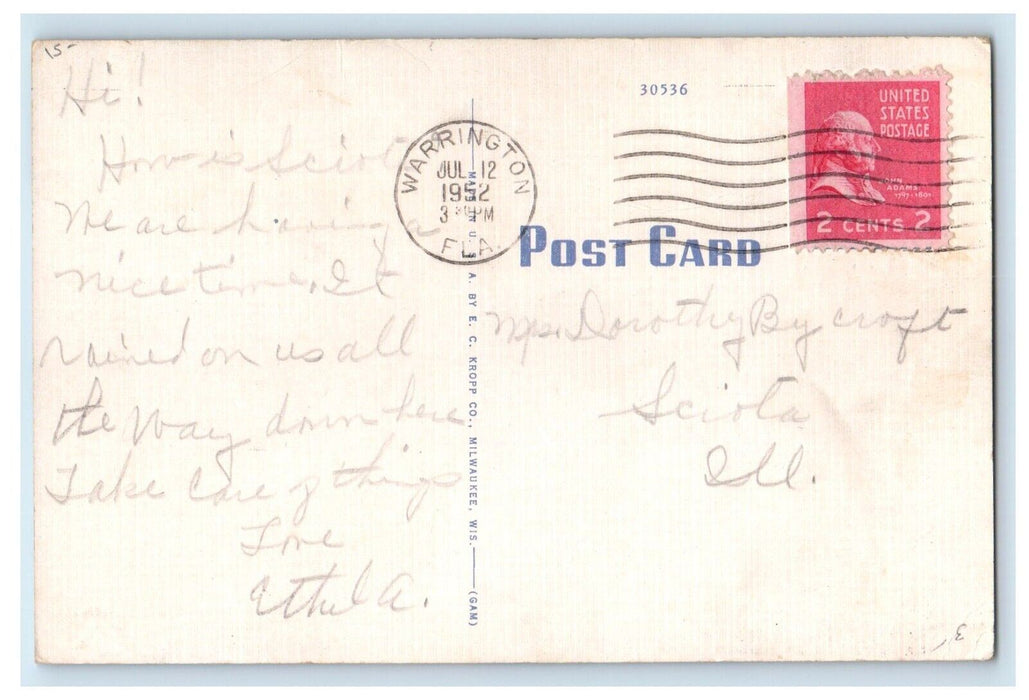 15-
Hi!
How is Sciot
We are having a
nice time. It
rained on us all
the way down here
Take care of things
Love
Ethel A.
WARRINGTON
JUL 12
1952
3 PM
FLA.
MADE IN U. S. A. BY E. C. KROPP CO., MILWAUKEE, WIS. (GAM)
30536
UNITED
STATES
POSTAGE
JOHN
ADAMS
1797-1801
2 CENTS 2
POST CARD
Dorothy Bycroft
Sciota
Ill.
3